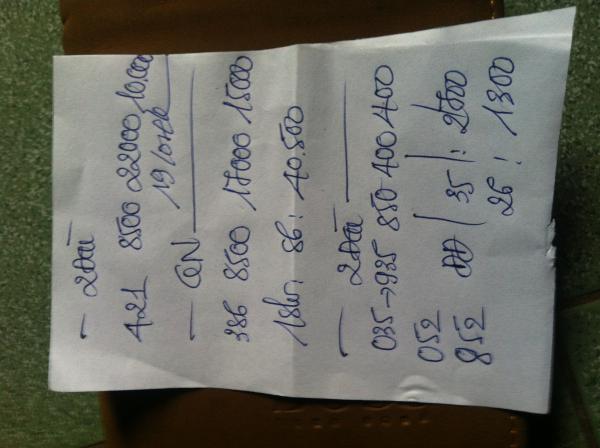 - 2Đài
421 8500 22000 10.000
19 lô
- QN
386 8500 17000 15000
18lô: 86: 40.500
- 2Đài
035->935 850 400 400
052 ĐĐ / 35 /: 2500
852 26: 1300